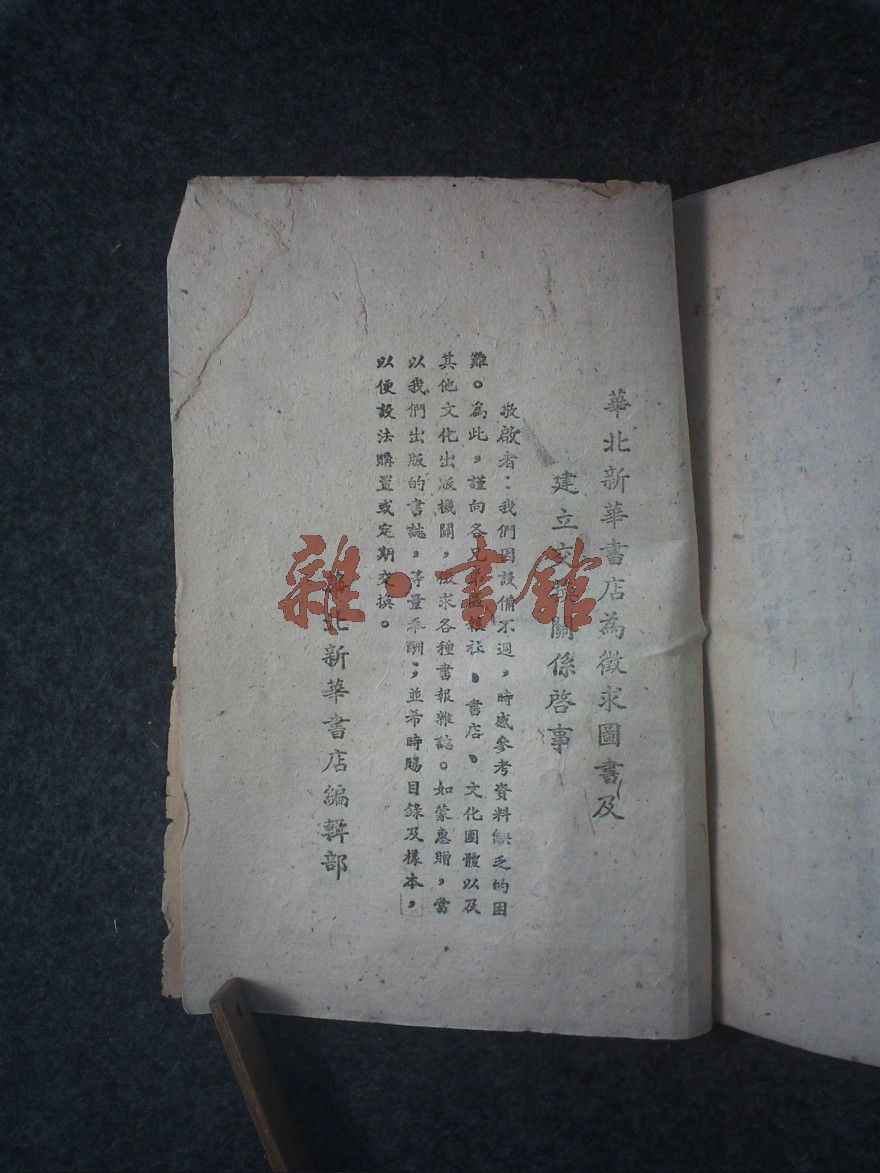 華北新華書店為徵求圖書及
建立交換關係啓事
敬啟者:我們因設備不週,時感參考資料缺乏的困
難。為此,謹向各兄弟報社、書店、文化團體以及
其他文化出版機關,徵求各種書報雜誌。如蒙惠贈,當
以我們出版的書誌,等量奉酬;並希時賜目錄及樣本,
以便設法購置或定期交換。
華北新華書店編輯部
雜·書館